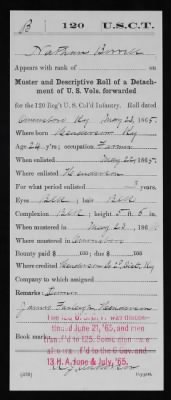 B | 120 | U.S.C.T.
Nathan
Appears with rank of on
Muster and Descriptive Roll of a Detach-
ment of U. S. Vols. forwarded
for the 120 Reg't U. S. Col'd Infantry. Roll dated
Owensboro Ky May 23, 1865.
Where born Henderson Ky
Age 24 y'rs; occupation Farmer
When enlisted May 22, 1865.
Where enlisted Henderson
For what period enlisted 3 years.
Eyes Blk; hair Blk
Complexion Blk; height 5 ft. 6 in.
When mustered in May 23, 186
Where mustered in Owensboro
Bounty paid $ 100; due $ 100
Where credited Henderson Ky
Company to which assigned
Remarks:
James Henderson
The 120 U.S.C.T. was discon-
tinued June 21, '65, and men
transf'd to 125. Some men were
also transf'd to the 6 Cav. and
13 H. A. June & July, '65.
Book mark:
Copyist.